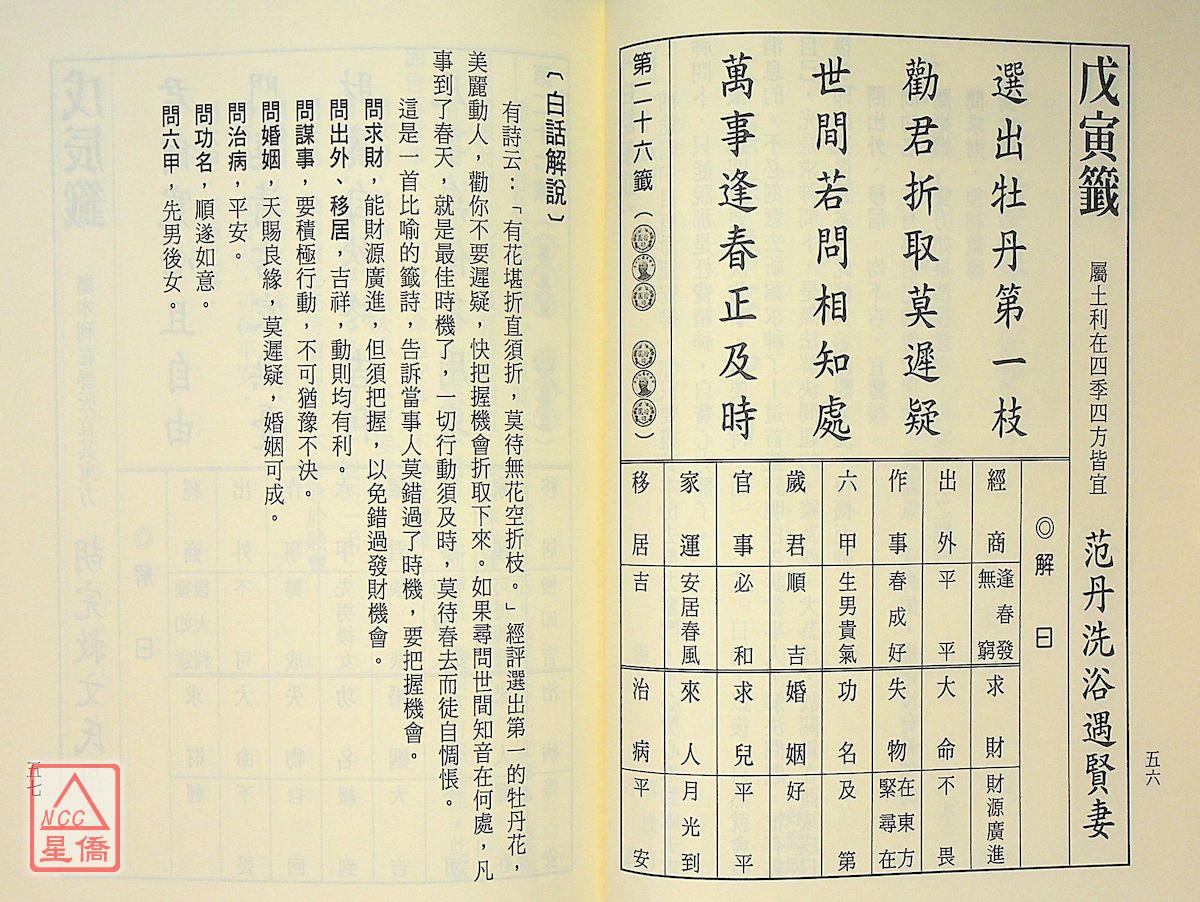 戊寅籤
屬土利在四季四方皆宜
范丹洗浴遇賢妻
選出牡丹第一枝
勸君折取莫遲疑
世間若問相知處
萬事逢春正及時
第二十六籤
◎解曰
經商 逢春發無窮
求財 財源廣進
出外 平平
大命 不畏
作事 春成好
失物 在東方緊尋在
六甲 生男貴氣
功名 及第
歲君 順吉
婚姻 好
官事 必和
求兒 平平
家運 安居春風
來人 月光到
移居 吉
治病 平安
五六
〔白話解說〕
有詩云：「有花堪折直須折，莫待無花空折枝。」經評選出第一的牡丹花，
美麗動人，勸你不要遲疑，快把握機會折取下來。如果尋問世間知音在何處，凡
事到了春天，就是最佳時機了，一切行動須及時，莫待春去而徒自惆悵。
這是一首比喻的籤詩，告訴當事人莫錯過了時機，要把握機會。
問求財，能財源廣進，但須把握，以免錯過發財機會。
問出外、移居，吉祥，動則均有利。
問謀事，要積極行動，不可猶豫不決。
問婚姻，天賜良緣，莫遲疑，婚姻可成。
問治病，平安。
問功名，順遂如意。
問六甲，先男後女。
五七
NCC
星僑